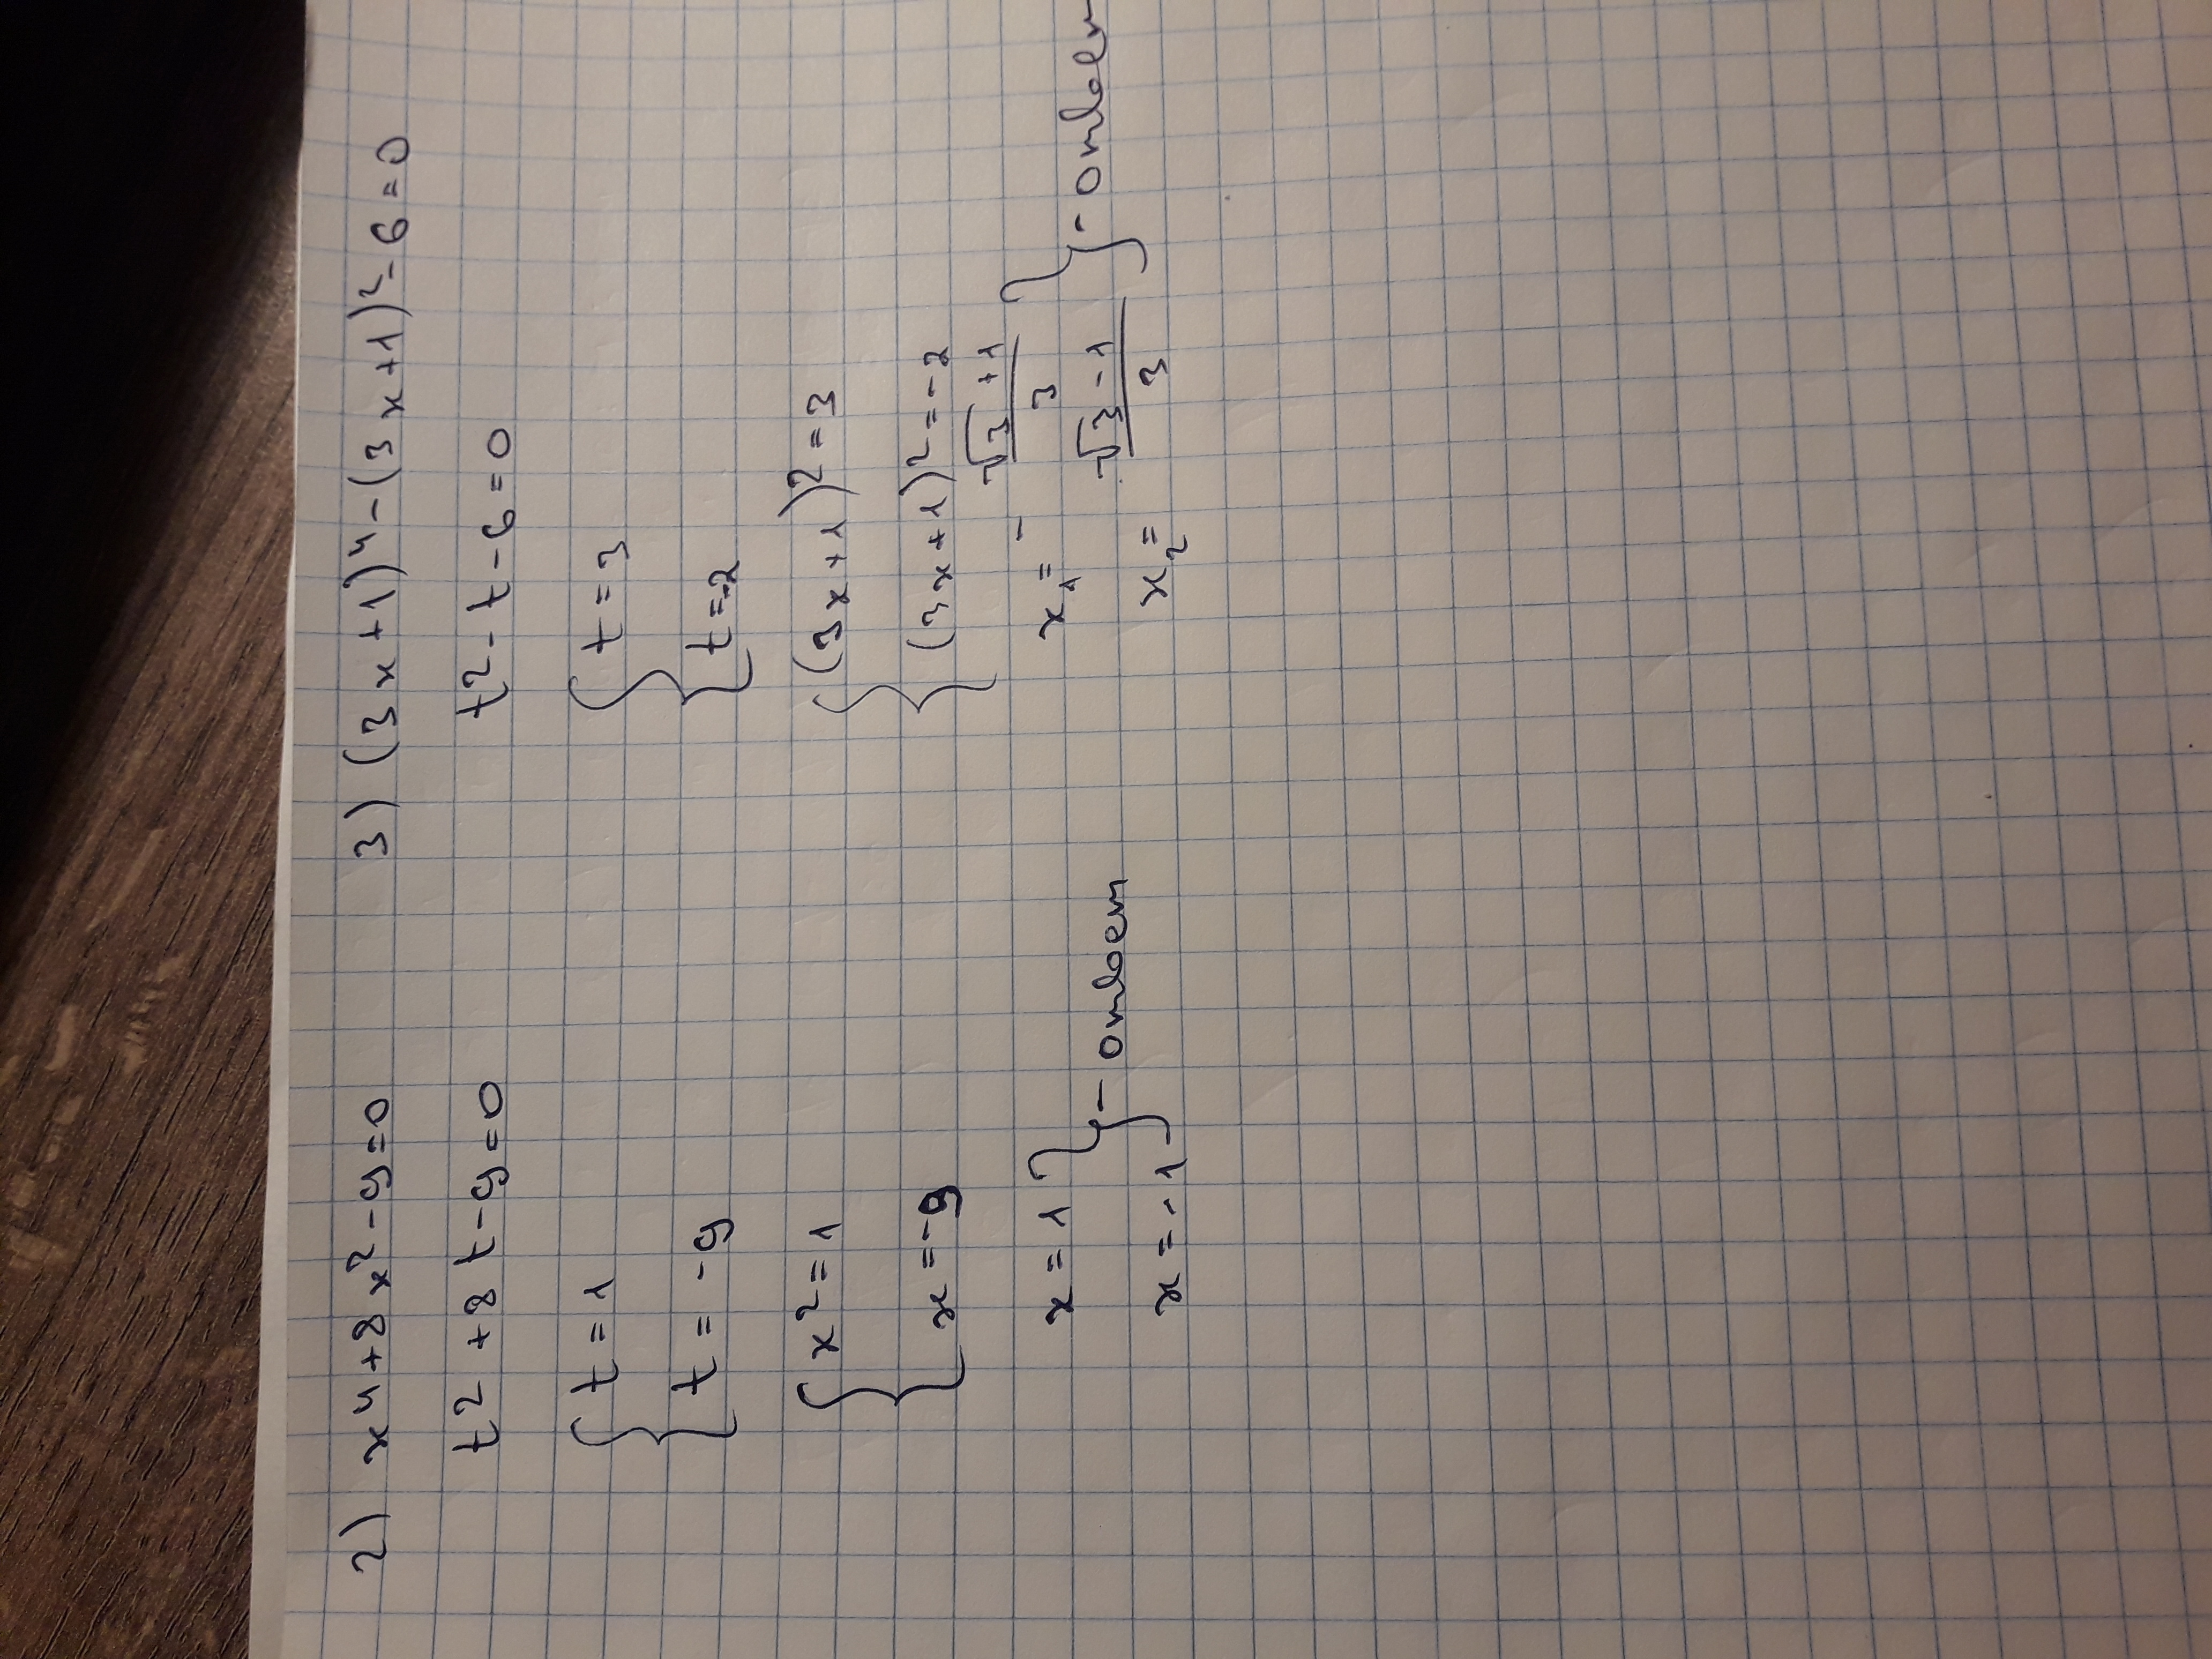 2) x⁴+8x²-9=0
t²+8t-9=0
{ t=1
t=-9
{ x²=1
x=-9
x=1 } - ответ
x=-1
3) (3x+1)⁴-(3x+1)²-6=0
t²-t-6=0
{ t=3
t=-2
{ (3x+1)²=3
(3x+1)²=-2
x₁= - (√3+1)/3 } - ответ
x₂= (√3-1)/3